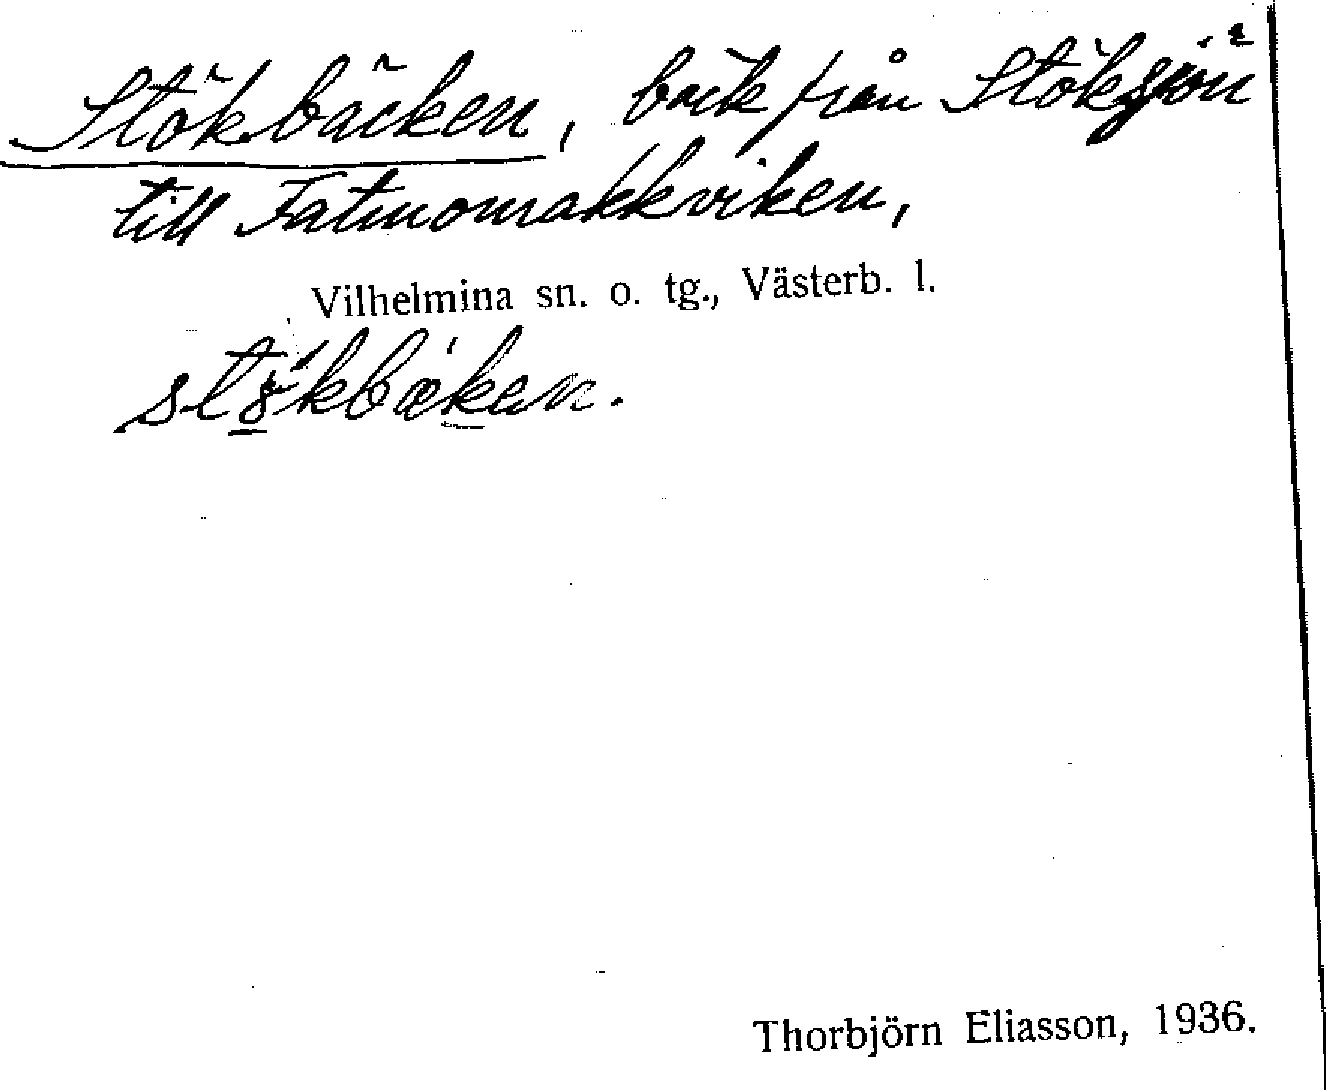 Stökbäcken, bäck från Stöksjön
till Fatmomakkviken,
Vilhelmina sn. o. tg., Västerb. l.
Thorbjörn Eliasson, 1936.